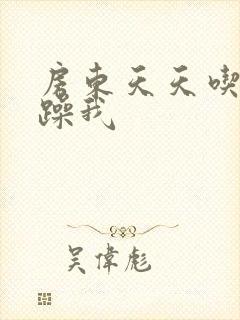 房東天天喫
躁我
吴偉彪